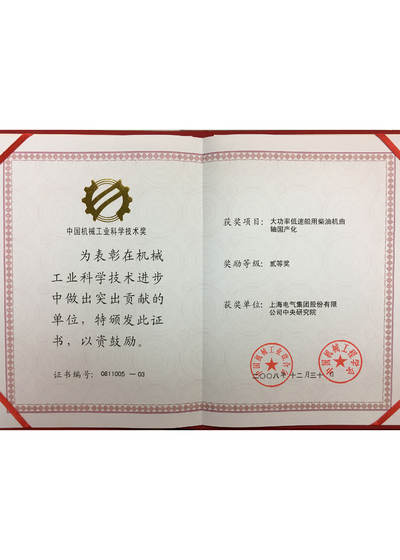 中国机械工业科学技术奖
为表彰在机械
工业科学技术进步
中做出突出贡献的
单位，特颁发此证
书，以资鼓励。
证书编号：0811005 — 03
获奖项目：大功率低速船用柴油机曲
轴国产化
奖励等级：贰等奖
获奖单位：上海电气集团股份有限
公司中央研究院
中国机械工业联合会
中国机械工程学会
二〇〇八年十二月三十日